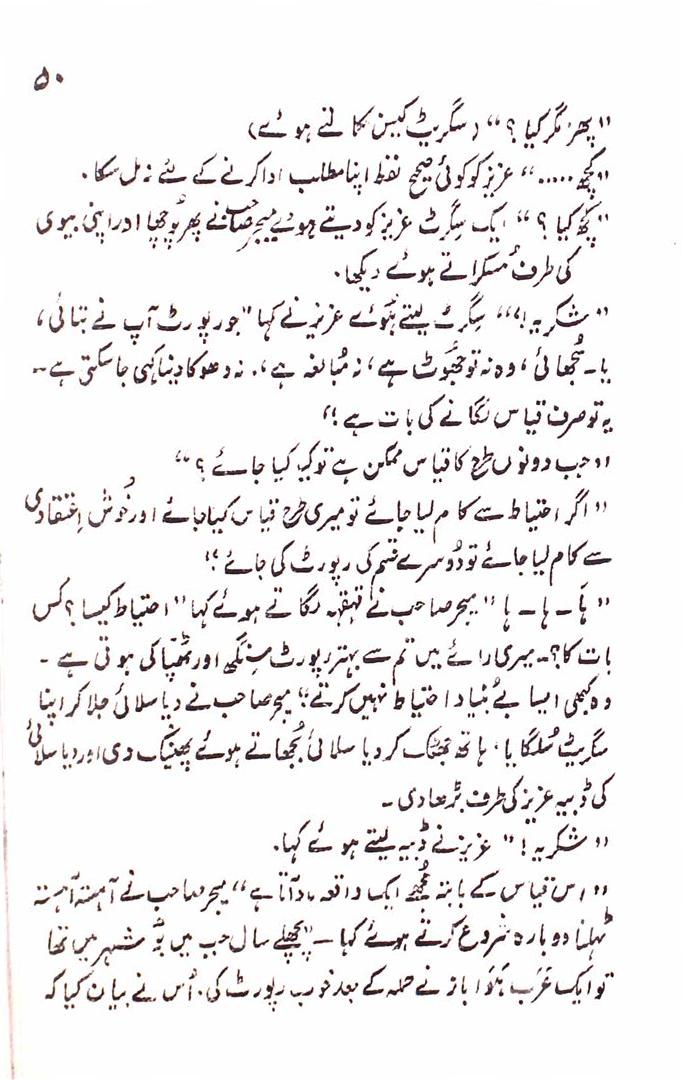 ۵۰
"پھر مگر کیا ؟" (سگریٹ کیس نکالتے ہوئے)
"کچھ ....." عزیز کو کوئی صحیح لفظ اپنا مطلب ادا کرنے کے لئے نہ مل سکا۔
"کچھ کیا ؟" ایک سِگرٹ عزیز کو دیتے ہوئے میجر صاحب نے پھر پُوچھا اور اپنی بیوی
کی طرف مُسکراتے ہوئے دیکھا۔
"شکریہ!" سِگرٹ لیتے ہُوئے عزیز نے کہا "جو رپورٹ آپ نے بتائی،
یا۔ سُجھائی، وہ نہ تو جھُوٹ ہے، نہ مُبالغہ ہے،۔ نہ دھوکا دینا کہی جا سکتی ہے۔۔
یہ تو صرف قیاس لگانے کی بات ہے!"
"جب دونوں طرح کا قیاس ممکن ہے تو کیا کیا جائے ؟"
"اگر احتیاط سے کام لیا جائے تو میری طرح قیاس کیا جائے اور خُوش اِعتقادی
سے کام لیا جائے تو دُوسرے قسم کی رپورٹ کی جائے!"
"ہا۔ ہا۔ ہا" میجر صاحب نے قہقہہ لگاتے ہوئے کہا "احتیاط کیسا ؟ کس
بات کا؟۔ میری رائے میں تم سے بہتر رپورٹ سِنگھ اور تھُپّا کی ہوتی ہے۔
وہ کبھی ایسا بے بُنیاد احتیاط نہیں کرتے!" میجر صاحب نے دیا سلائی جلا کر اپنا
سگریٹ سُلگایا، ہاتھ جھٹک کر دیا سلائی بُجھاتے ہوئے پھینک دی اور دیا سلائی
کی ڈبیہ عزیز کی طرف بڑھا دی۔
"شکریہ!" عزیز نے ڈبیہ لیتے ہوئے کہا۔
"اس قیاس کے بابتہ مُجھے ایک واقعہ یاد آتا ہے" میجر صاحب نے آہستہ آہستہ
ٹہلنا دوبارہ شروع کرتے ہوئے کہا۔ "پچھلے سال جب میں شہر میں تھا
تو ایک عَرَب ہَوا باز نے حملہ کے بعد خوب رپورٹ کی۔ اُس نے بیان کیا کہ